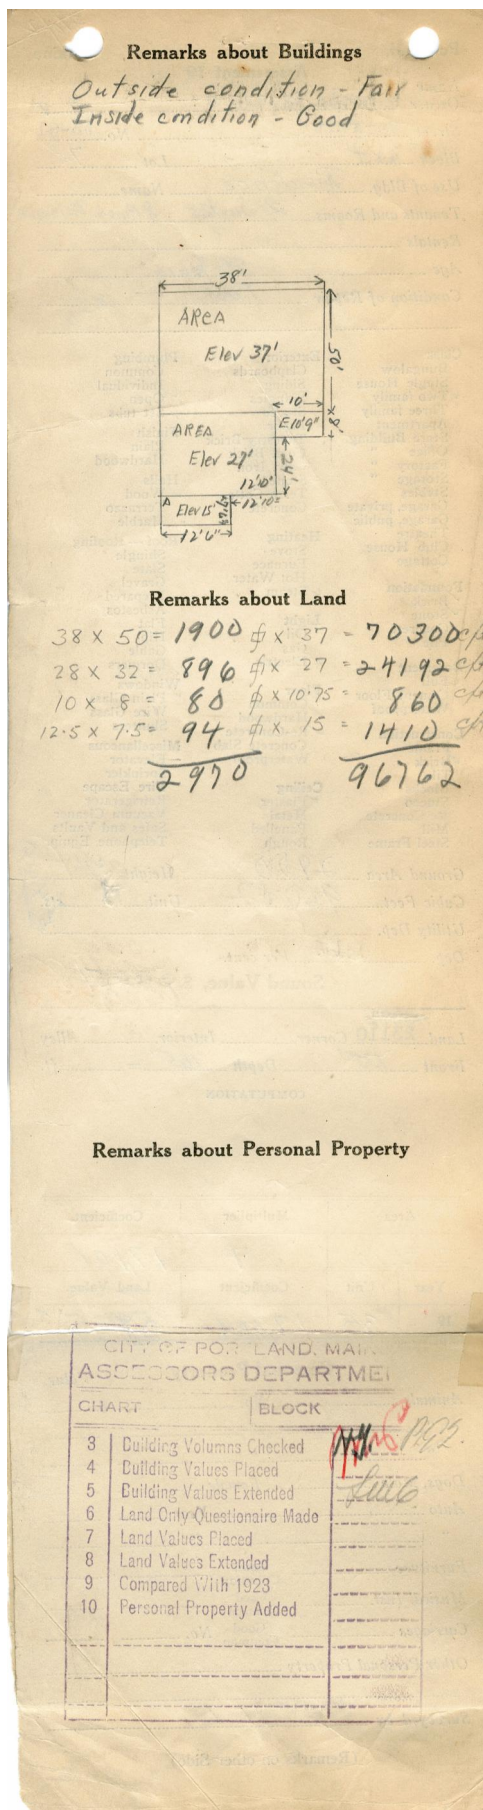 Remarks about Buildings
Outside condition - Fair
Inside condition - Good
38'
AREA
Elev 37'
50'
10'
E 10'9"
8'
AREA
Elev 27'
24'
12'10"
A
Elev 15'
12'10"
12'6"
Remarks about Land
38 x 50 = 1900 ⌀ x 37 = 70300 c/ft
28 x 32 = 896 ⌀ x 27 = 24192 c/ft
10 x 8 = 80 ⌀ x 10.75 = 860 c/ft
12.5 x 7.5 = 94 ⌀ x 15 = 1410 c/ft
2970 96762
Remarks about Personal Property
CITY OF PORTLAND, MAI
ASSESSORS DEPARTME
CHART BLOCK
3 Building Volumns Checked
4 Building Values Placed
5 Building Values Extended
6 Land Only Questionaire Made
7 Land Values Placed
8 Land Values Extended
9 Compared With 1923
10 Personal Property Added